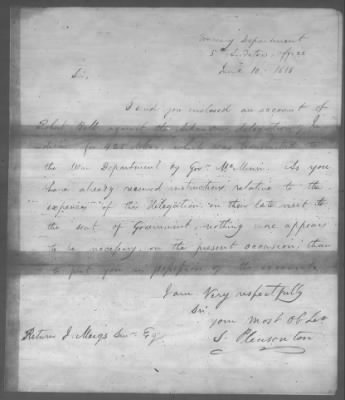 Treasury Department
5th Auditors office
June 10, 1818
Sir,
I send you enclosed an account of
Robert Bell against the Delegation of
for 425 transmitted to
the War Department by Govr. McMinn. As you
have already received instructions relative to the
expenses of this Delegation on their late visit to
the seat of Government, nothing more appears
to be necessary on the present occasion, than
to put you in possession of the account.
I am Very respectfully
Sir,
your most Ob Ser
S. Pleasonton
Return J. Meigs Senr. Esq